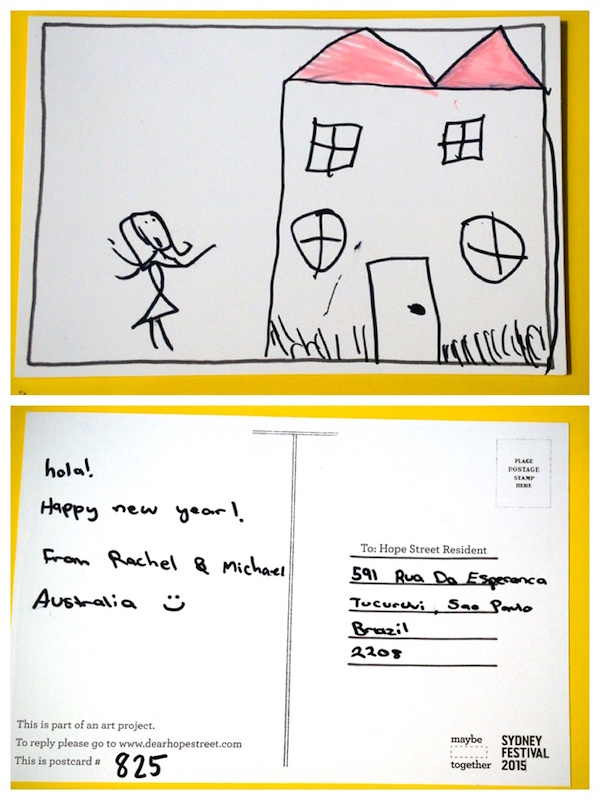 hola!
Happy new year!
From Rachel & Michael
Australia
PLACE
POSTAGE
STAMP
HERE
To: Hope Street Resident
591 Rua Da Esperanca
Tucuruvi, Sao Paulo
Brazil
2208
This is part of an art project.
To reply please go to www.dearhopestreet.com
This is postcard # 825
maybe
together
SYDNEY
FESTIVAL
2015